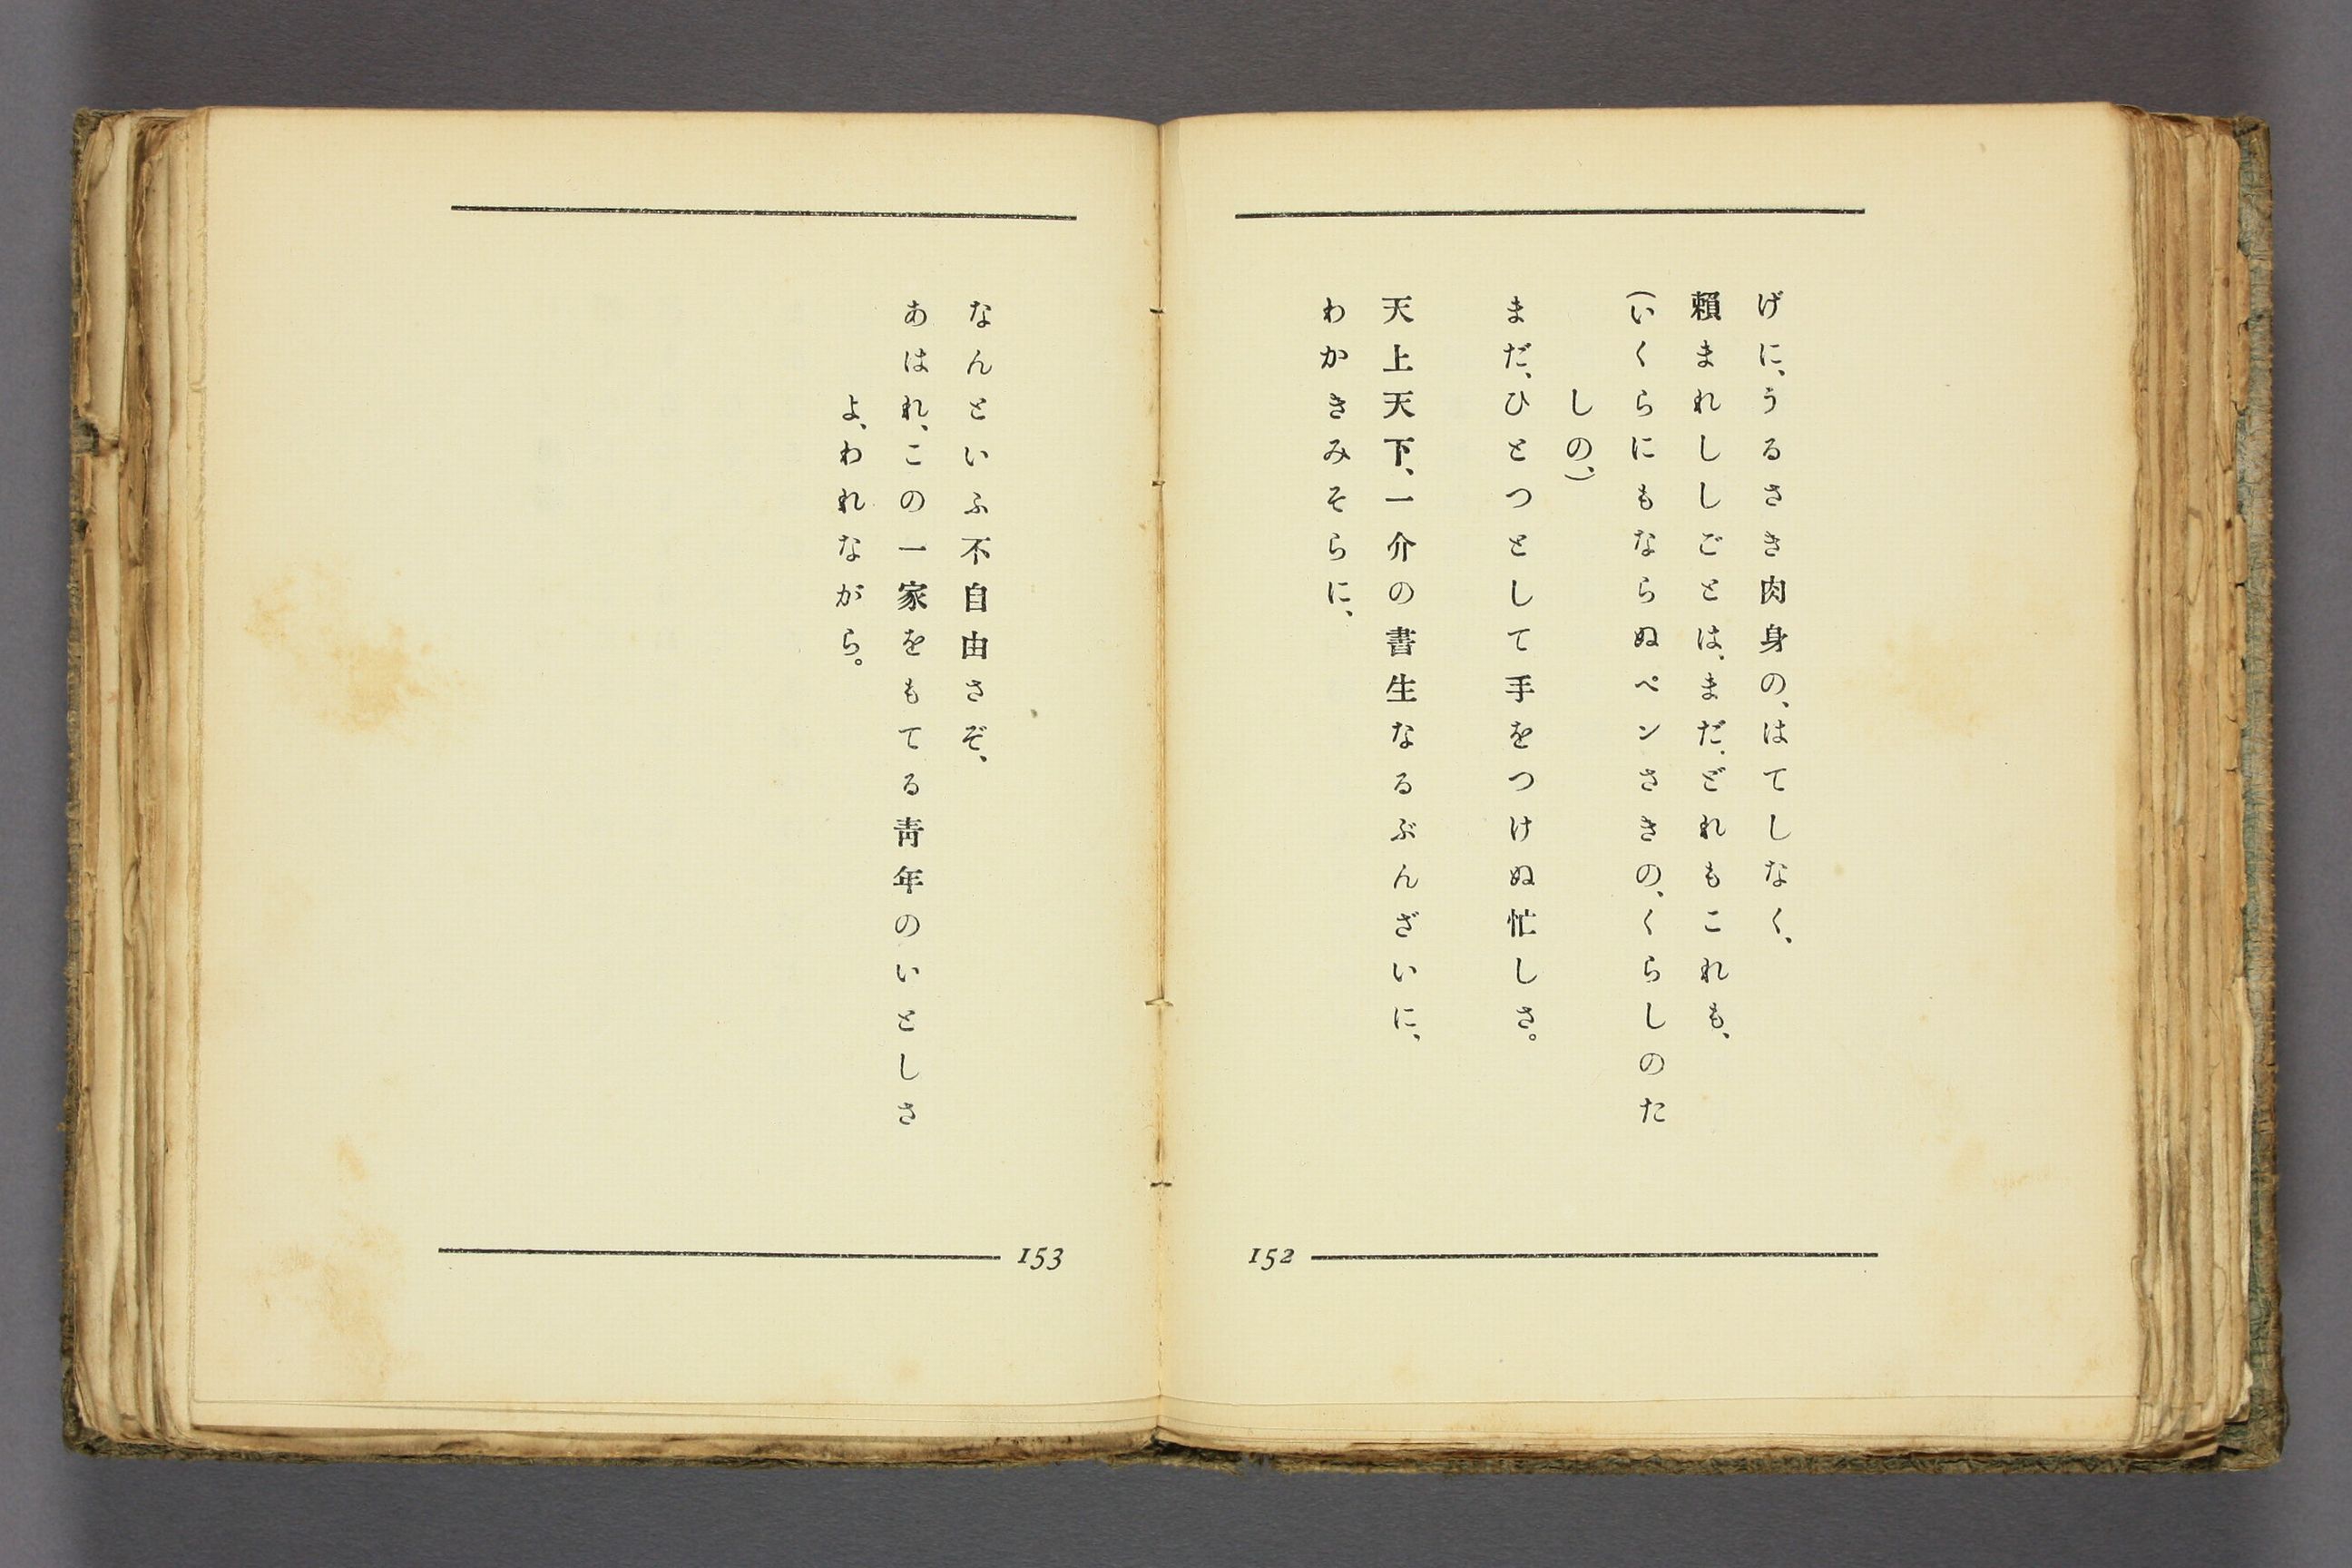 げに、うるさき肉身の、はてしなく、
賴まれししごとは、まだ、どれもこれも、
(いくらにもならぬペンさきの、くらしのた
しの、)
まだ、ひとつとして手をつけぬ忙しさ。
天上天下、一介の書生なるぶんざいに、
わかきみそらに、
152
なんといふ不自由さぞ、
あはれ、この一家をもてる靑年のいとしさ
よ、われながら。
153